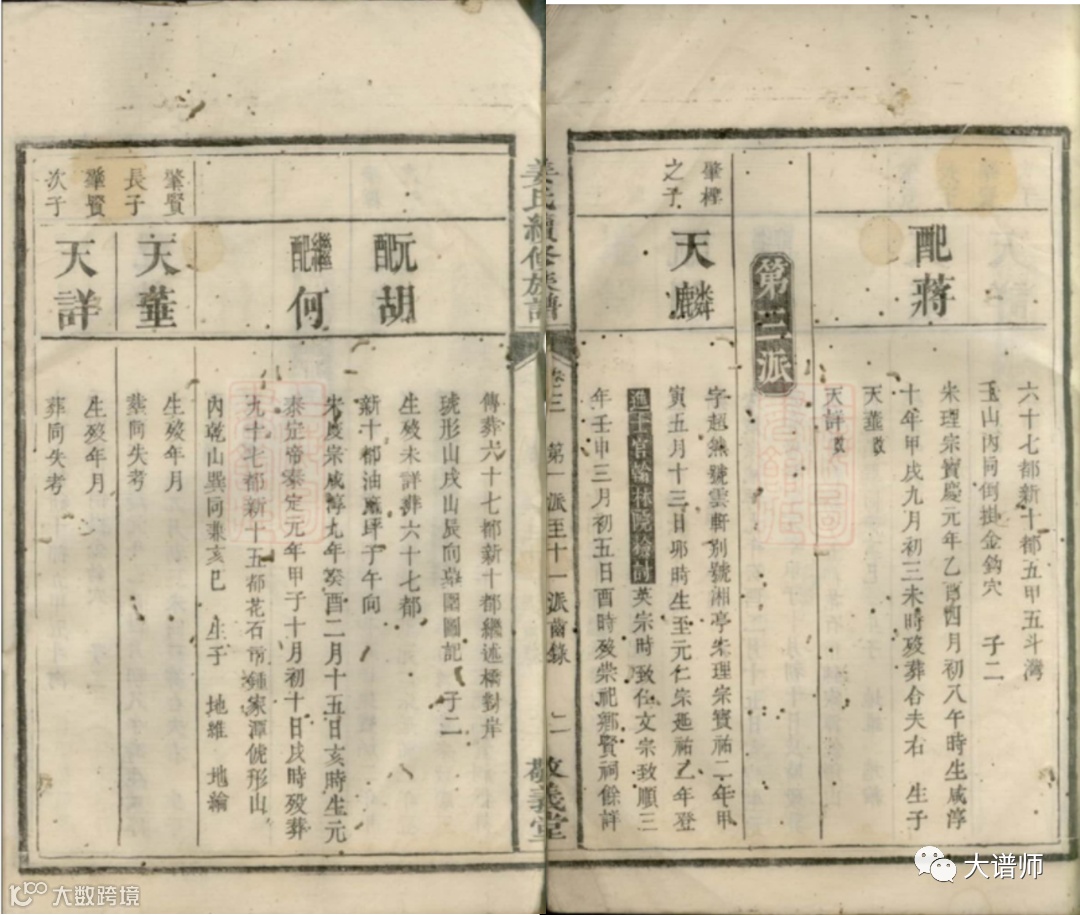 六十七都新十都五甲五斗灣
玉山內同倒掛金鈎穴 子二
配蔣
宋理宗寶慶元年乙酉四月初八午時生咸淳
十年甲戌九月初三未時歿葬合夫右 生子
天華
天詳
第三派
肇樨
之子
天麟
字超然號雲軒別號湘亭宋理宗寶祐二年甲
寅五月十三日卯時生至元仁宗延祐乙年登
進士官翰林院檢討英宗時致仕文宗致順三
年壬申三月初五日酉時歿崇祀鄉賢祠餘詳
姜氏續修族譜
卷三 第一派至十一派齒錄 二 敬義堂
傳葬六十七都新十都繼述橋對岸
琥形山戌山辰向墓圖圖記 子二
元配胡
生歿未詳葬六十七都
新十都油麻坪子午向
繼配何
宋度宗咸淳九年癸酉二月十五日亥時生元
泰定帝泰定元年甲子十月初十日戌時歿葬
九十七都新十五都花石市鍾家潭虎形山
內乾山巽向兼亥巳 生子 地維 地綸
肇賢
長子
天華
生歿年月
葬向失考
肇賢
次子
天詳
生歿年月
葬向失考
大谱师
大数跨境